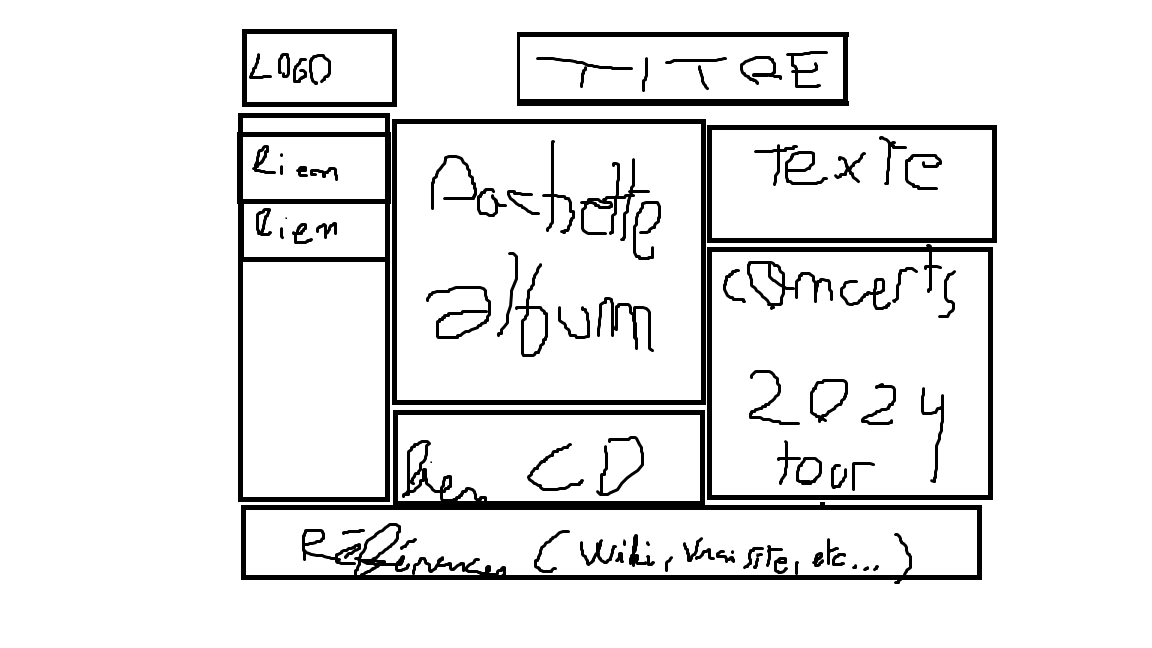 LOGO
TITRE
Lien
Lien
Pochette
album
Texte
concerts
2024
tour
Lien CD
Références (Wiki, vrai site, etc...)